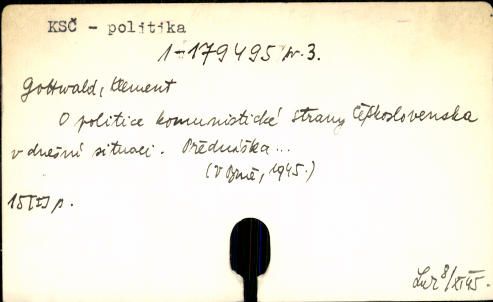 KSČ - politika
1-179495 pr.3.
Gottwald, Klement
O politice komunistické strany Československa
v dnešní situaci. Přednáška...
(V Brně, 1945.)
8/XI 45.